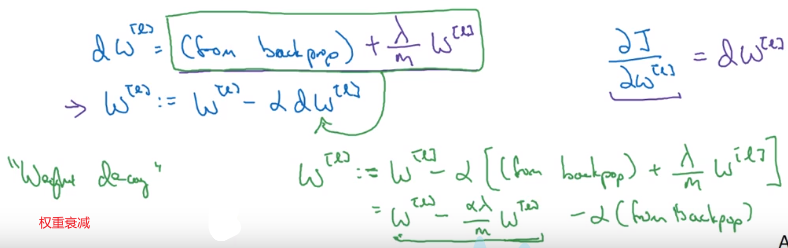 dw^[l] = (from backprop) + λ/m w^[l]
∂J/∂w^[l] = dw^[l]
→ w^[l] := w^[l] - α dw^[l]
"Weight decay"
权重衰减
w^[l] := w^[l] - α [(from backprop) + λ/m w^[l]]
= w^[l] - αλ/m w^[l] - α (from backprop)
A